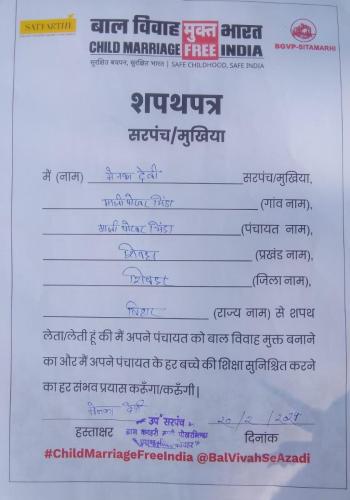 SATYARTHI
बाल विवाह मुक्त भारत
CHILD MARRIAGE FREE INDIA
सुरक्षित बचपन, सुरक्षित भारत | SAFE CHILDHOOD, SAFE INDIA
BGVP-SITAMARHI
शपथपत्र
सरपंच/मुखिया
मैं (नाम) मेनका देवी सरपंच/मुखिया,
(गांव नाम),
(पंचायत नाम),
(प्रखंड नाम),
(जिला नाम),
बिहार (राज्य नाम) से शपथ
लेता/लेती हूं की मैं अपने पंचायत को बाल विवाह मुक्त बनाने
का ओर मैं अपने पंचायत के हर बच्चे की शिक्षा सुनिश्चित करने
का हर संभव प्रयास करूँगा/करुँगी |
मेनका देवी
उप सरपंच
20/2/2024
हस्ताक्षर दिनांक
#ChildMarriageFreeIndia @BalVivahSeAzadi